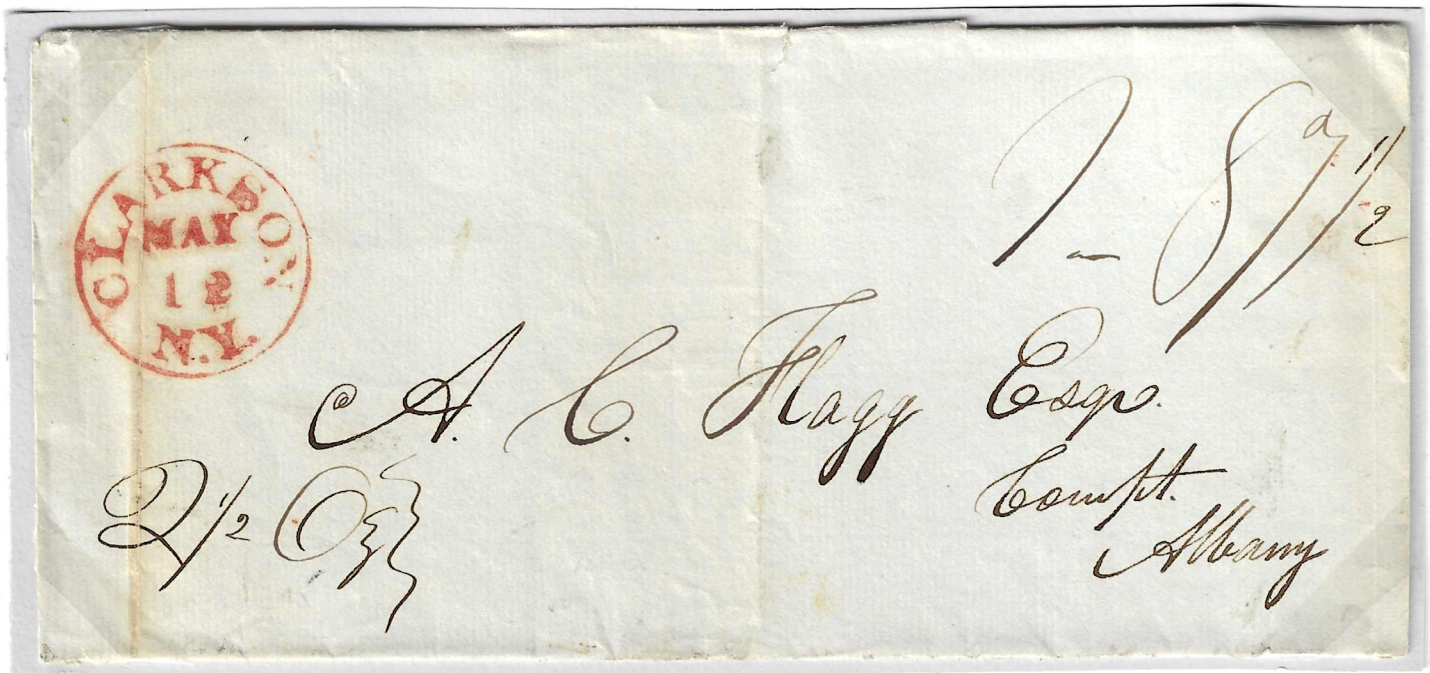 CLARKSON
MAY
12
N.Y.
1-87 1/2
A. C. Flagg Esqr.
Compt.
Albany
2 1/2 Oz